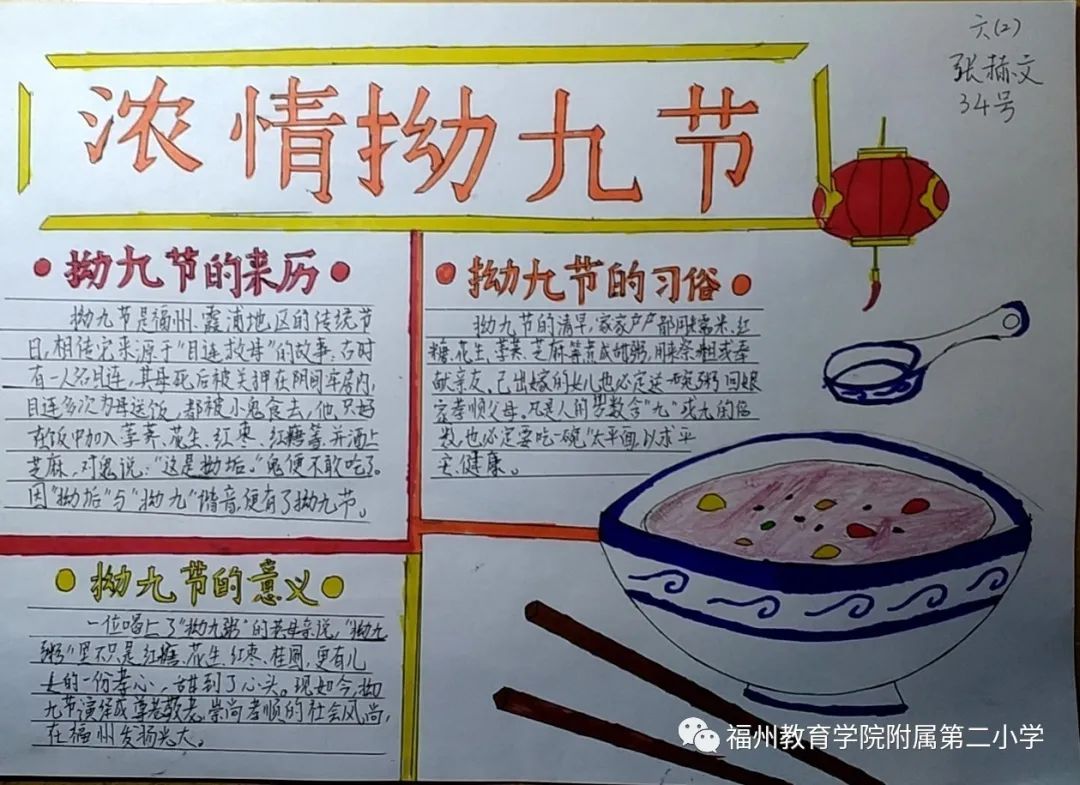 六(2)
张赫文
34号
浓情拗九节
拗九节的来历
拗九节是福州、霞浦地区的传统节
日,相传它来源于“目连救母”的故事。古时
有一人名目连,其母死后被关押在阴间牢房内,
目连多次为母送饭,都被小鬼食去,他只好
在饭中加入荸荠、花生、红枣、红糖等,并洒上
芝麻,对鬼说:“这是拗垢。”鬼便不敢吃了。
因“拗垢”与“拗九”谐音,便有了拗九节。
拗九节的习俗
拗九节的清早,家家户户都用糯米、红
糖、花生、荸荠、芝麻等煮成甜粥,用来祭祖或奉
献亲友。已出嫁的女儿也必定送一碗粥回娘
家孝顺父母。凡是人的岁数含“九”或九的倍
数,也必定要吃一碗“太平面,以求平
安、健康。
拗九节的意义
一位喝上了“拗九粥”的老母亲说,“拗九
粥”里不只是红糖、花生、红枣、桂圆,更有儿
女的一份孝心,甜到了心头。现如今,拗
九节演绎成尊老敬老,崇尚孝顺的社会风尚,
在福州发扬光大。
福州教育学院附属第二小学